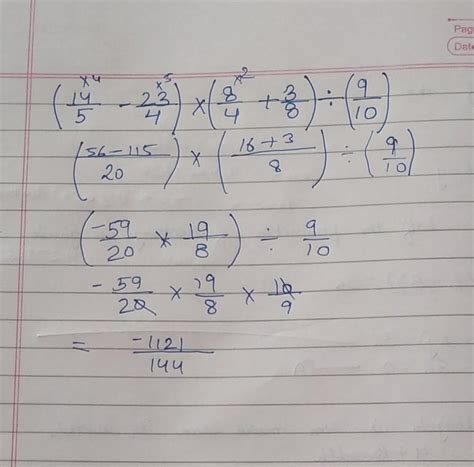 Pag
Date
(14/5 ×4 - 23/4 ×5) × (8/4 ×2 + 3/8) ÷ (9/10)
(56-115/20) × (16+3/8) ÷ (9/10)
(-59/20 × 19/8) ÷ 9/10
-59/20 × 19/8 × 10/9
= -1121/144